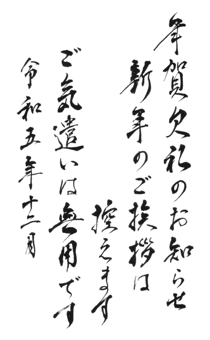 年賀欠礼のお知らせ
新年のご挨拶は
控えます
ご気遣いは無用です
令和五年十二月